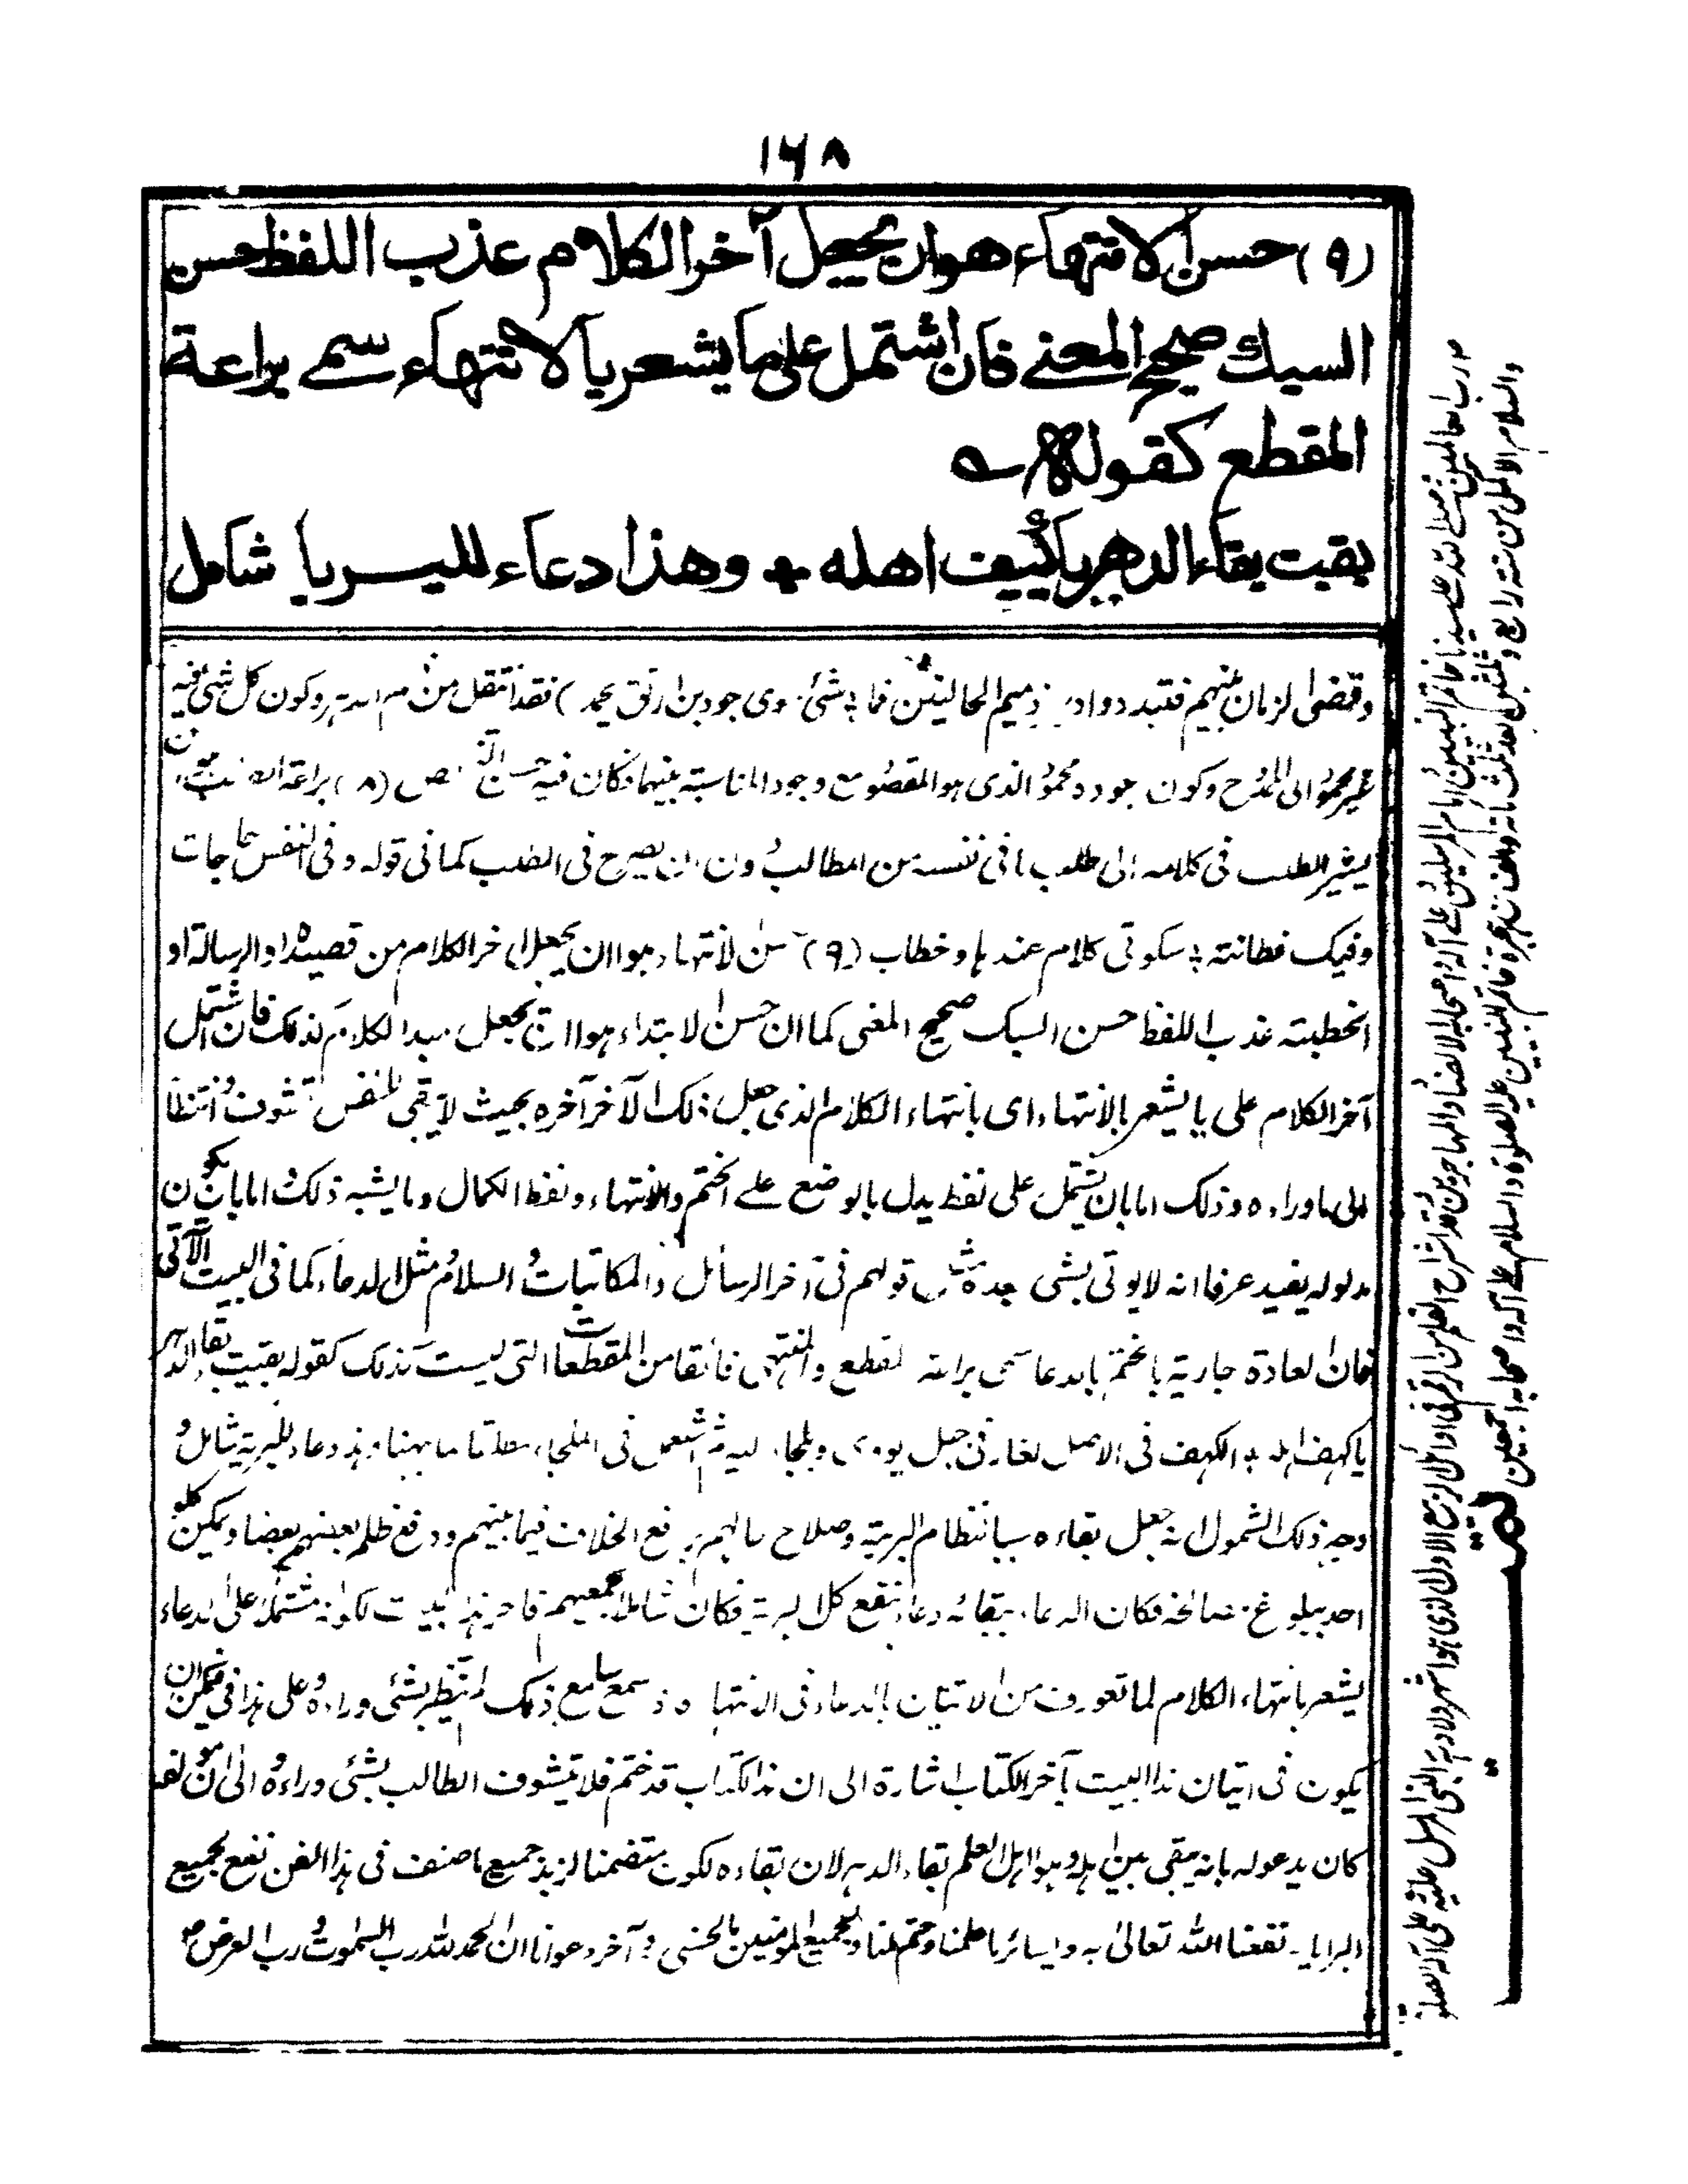 ١٦٨
(٩) حسن الانتهاء هو ان يجعل آخر الكلام عذب اللفظ حسن
السبك صحيح المعنى فان اشتمل على ما يشعر بالانتهاء سمے براعة
المقطع كقوله
بقيت بقاء الدهر يا كهف اهله + وهذا دعاء للبرية شامل
وقضى الزمان بينهم فتبددوا دميم الحالين فما شئ جود بن ارتق يحمد) فقد انتقل من وكون كل شئ فيه
غير محمود الى المدح وكون جوده محمودا الذى هو المقصود مع وجود المناسبة بينهما فكان فيه حسن (٨) براعة
يشير الطلب فى كلامه الى طلب ما فى نفسه من المطالب دون ان يصرح فى الطلب كما فى قوله وفى النفس حاجات
وفيك فطانة سكوتى كلام عندها وخطاب (٩) حسن الانتهاء هو ان يجعل آخر الكلام من قصيدة او الرسالة او
الخطبة عذب اللفظ حسن السبك صحيح المعنى كما ان حسن الابتداء هو ان يجعل مبدا الكلام كذلك فان اشتمل
آخر الكلام على ما يشعر بالانتهاء اى بانتهاء الكلام الذى جعل ذلك الآخر آخره بحيث لا يبقى للنفس تشوف وانتظار
الى ما وراءه وذلك اما بان يشتمل على لفظ يدل بالوضع على الختم والانتهاء ولفظ الكمال وما يشبه ذلك واما بان يكون
مدلوله يفيد عرفا انه لا يوتى بشئ بعده مثل قولهم فى آخر الرسائل والمكاتبات والسلام ومثل الدعاء كما فى البيت الآتى
فان العادة جارية بالختم بالدعا سمى براعة المقطع والمنتهى فائقا من المقطعات التى ليست كذلك كقوله بقيت بقاء الدهر
يا كهف اهله الكهف فى الاصل الغار فى جبل يووى ويلجا اليه ثم استعمل فى الملجاء مطلقا كما ههنا وهذا دعاء للبرية شامل و
وجه ذلك الشمول انه جعل بقاءه سببا لنظام البرية وصلاح حالهم برفع الخلاف فيما بينهم ودفع ظلم بعضهم بعضا وتمكين كل
احد ببلوغ مصالحه فكان الدعاء ببقائه دعاء بنفع كل البرية فكان شاملا لجميعهم فآخر هذا البيت لكونه مشتملا على الدعاء
يشعر بانتهاء الكلام لما تعورف من الاتيان بالدعاء فى الانتهاء سمع سامع ذلك لم ينتظر بشئ وراءه وعلى هذا فيمكن ان
يكون فى اتيان هذا البيت بآخر الكتاب اشارة الى ان هذا الكتاب قد ختم فلا يتشوف الطالب بشئ وراءه والى ان
كان يدعو له بانه يبقى بين اهله وهو اهل العلم بقاء الدهر لان بقاءه لكونه متضمنا لزبد جميع ما صنف فى هذا الفن نفع لجميع
البرايا۔ نفعنا الله تعالى به و بسائر ما علمنا وختم لنا ولجميع المومنين بالحسنى وآخر دعوانا ان الحمد لله رب السموت ورب العرض
رب العالمين وصلى الله على سيدنا خاتم النبيين وامام المرسلين وعلى آله وصحابه الانصار والمهاجرين قد استراح القلم من الرقم فى اوائل الربيع الاول الذى هو شهر ولادة النبى المرسل عليه وعلى آله الصلوة
والسلام الاكمل من سنة رابع وثلثين بعد ثلث مائة والف من هجرة خاتم النبيين عليه الصلوة والسلام وعلى آله واصحابه اجمعين
تمت